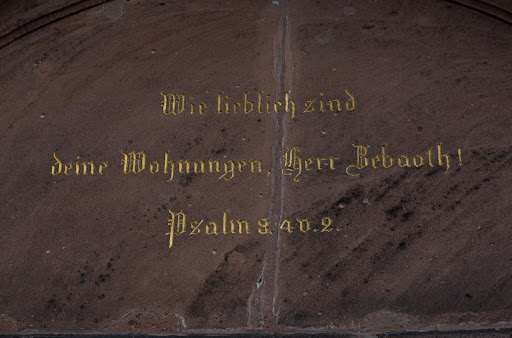 Wie lieblich sind
deine Wohnungen, Herr Zebaoth!
Psalm 8.4 v.2.